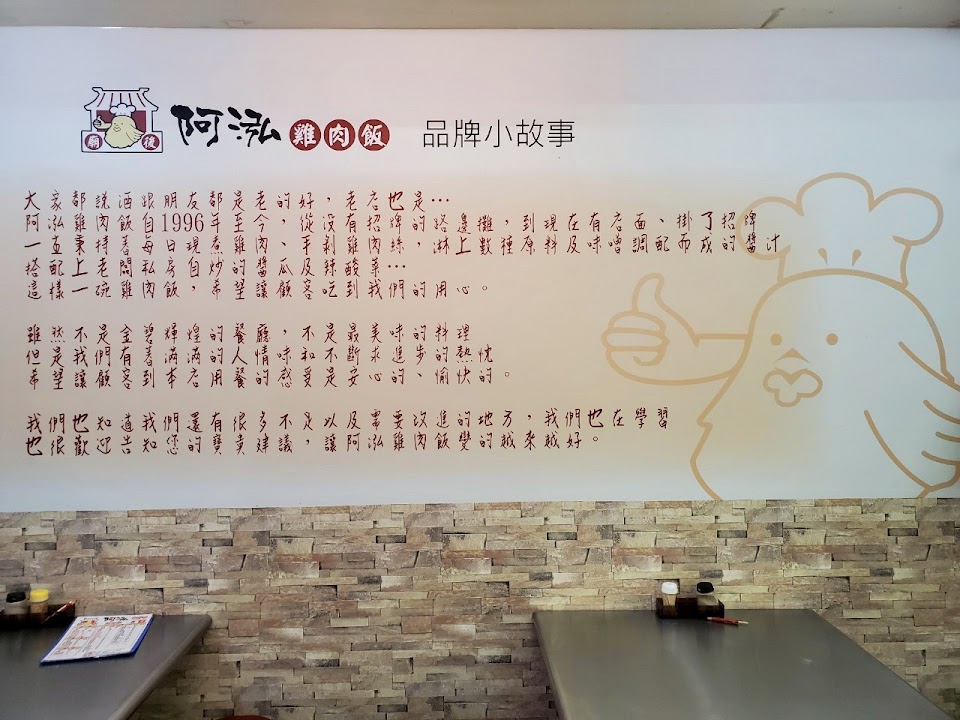 廟後
阿泓雞肉飯 品牌小故事
大家都說酒跟朋友都是老的好，老店也是…
阿泓雞肉飯自1996年至今，從沒有招牌的路邊攤，到現在有店面、掛了招牌
一直秉持著每日現煮雞肉、手剝雞肉絲，淋上數種原料及味噌調配而成的醬汁
搭配上老闆私房自炒的醬瓜及辣酸菜…
這樣一碗雞肉飯，希望讓顧客吃到我們的用心。
雖然不是金碧輝煌的餐廳，不是最美味的料理
但是我們有著滿滿的人情味和不斷求進步的熱忱
希望讓顧客到本店用餐的感受是安心的、愉快的。
我們也知道我們還有很多不足以及需要改進的地方，我們也在學習
也很歡迎告知您的寶貴建議，讓阿泓雞肉飯變的越來越好。
阿泓